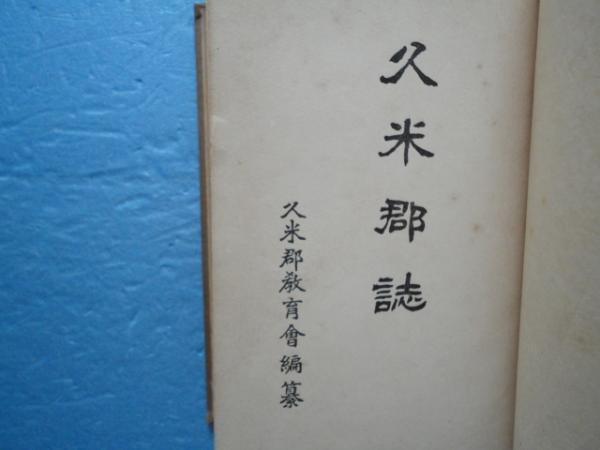 久米郡誌
久米郡教育會編纂